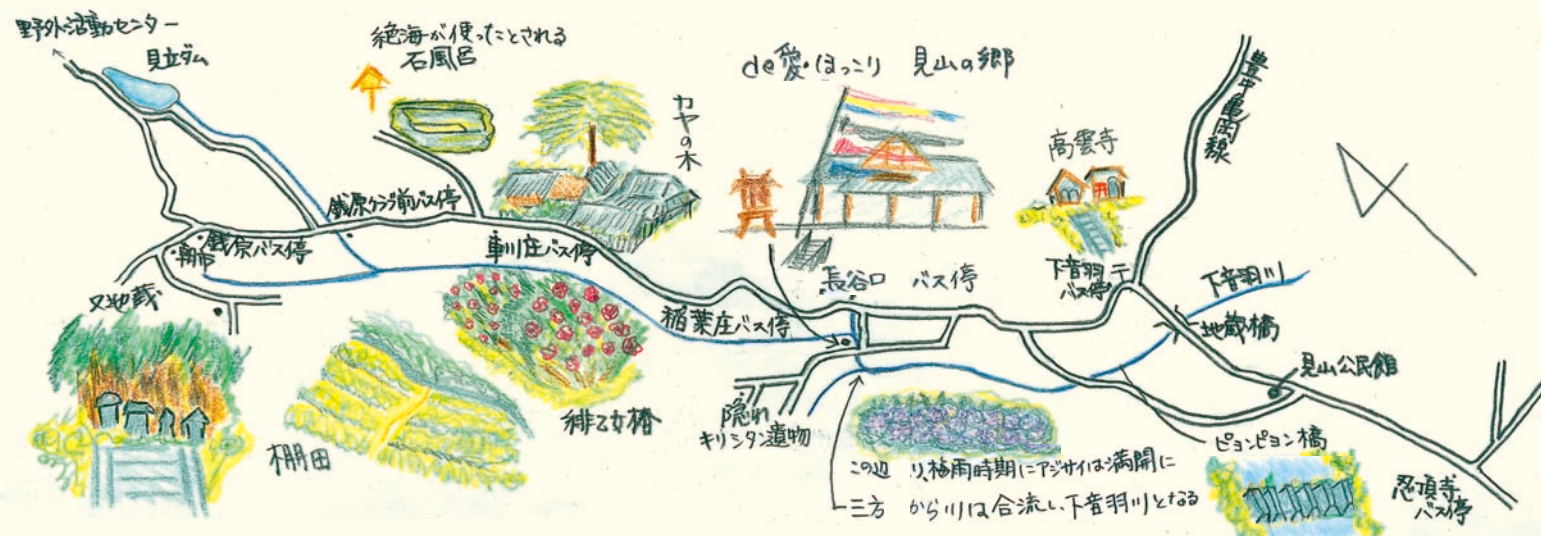 野外活動センター
見立ダム
絶海が使ったとされる
石風呂
カヤの木
de愛・ほっこり 見山の郷
高雲寺
豊中亀岡線
銭原クラブ前バス停
銭原バス停
朝市
車川庄バス停
長谷口 バス停
下音羽
バス停
下音羽川
地蔵橋
稲葉庄バス停
見山公民館
棚田
緋乙女椿
隠れ
キリシタン遺物
この辺り、梅雨時期にアジサイは満開に
三方から川は合流し、下音羽川となる
ピョンピョン橋
忍頂寺
バス停